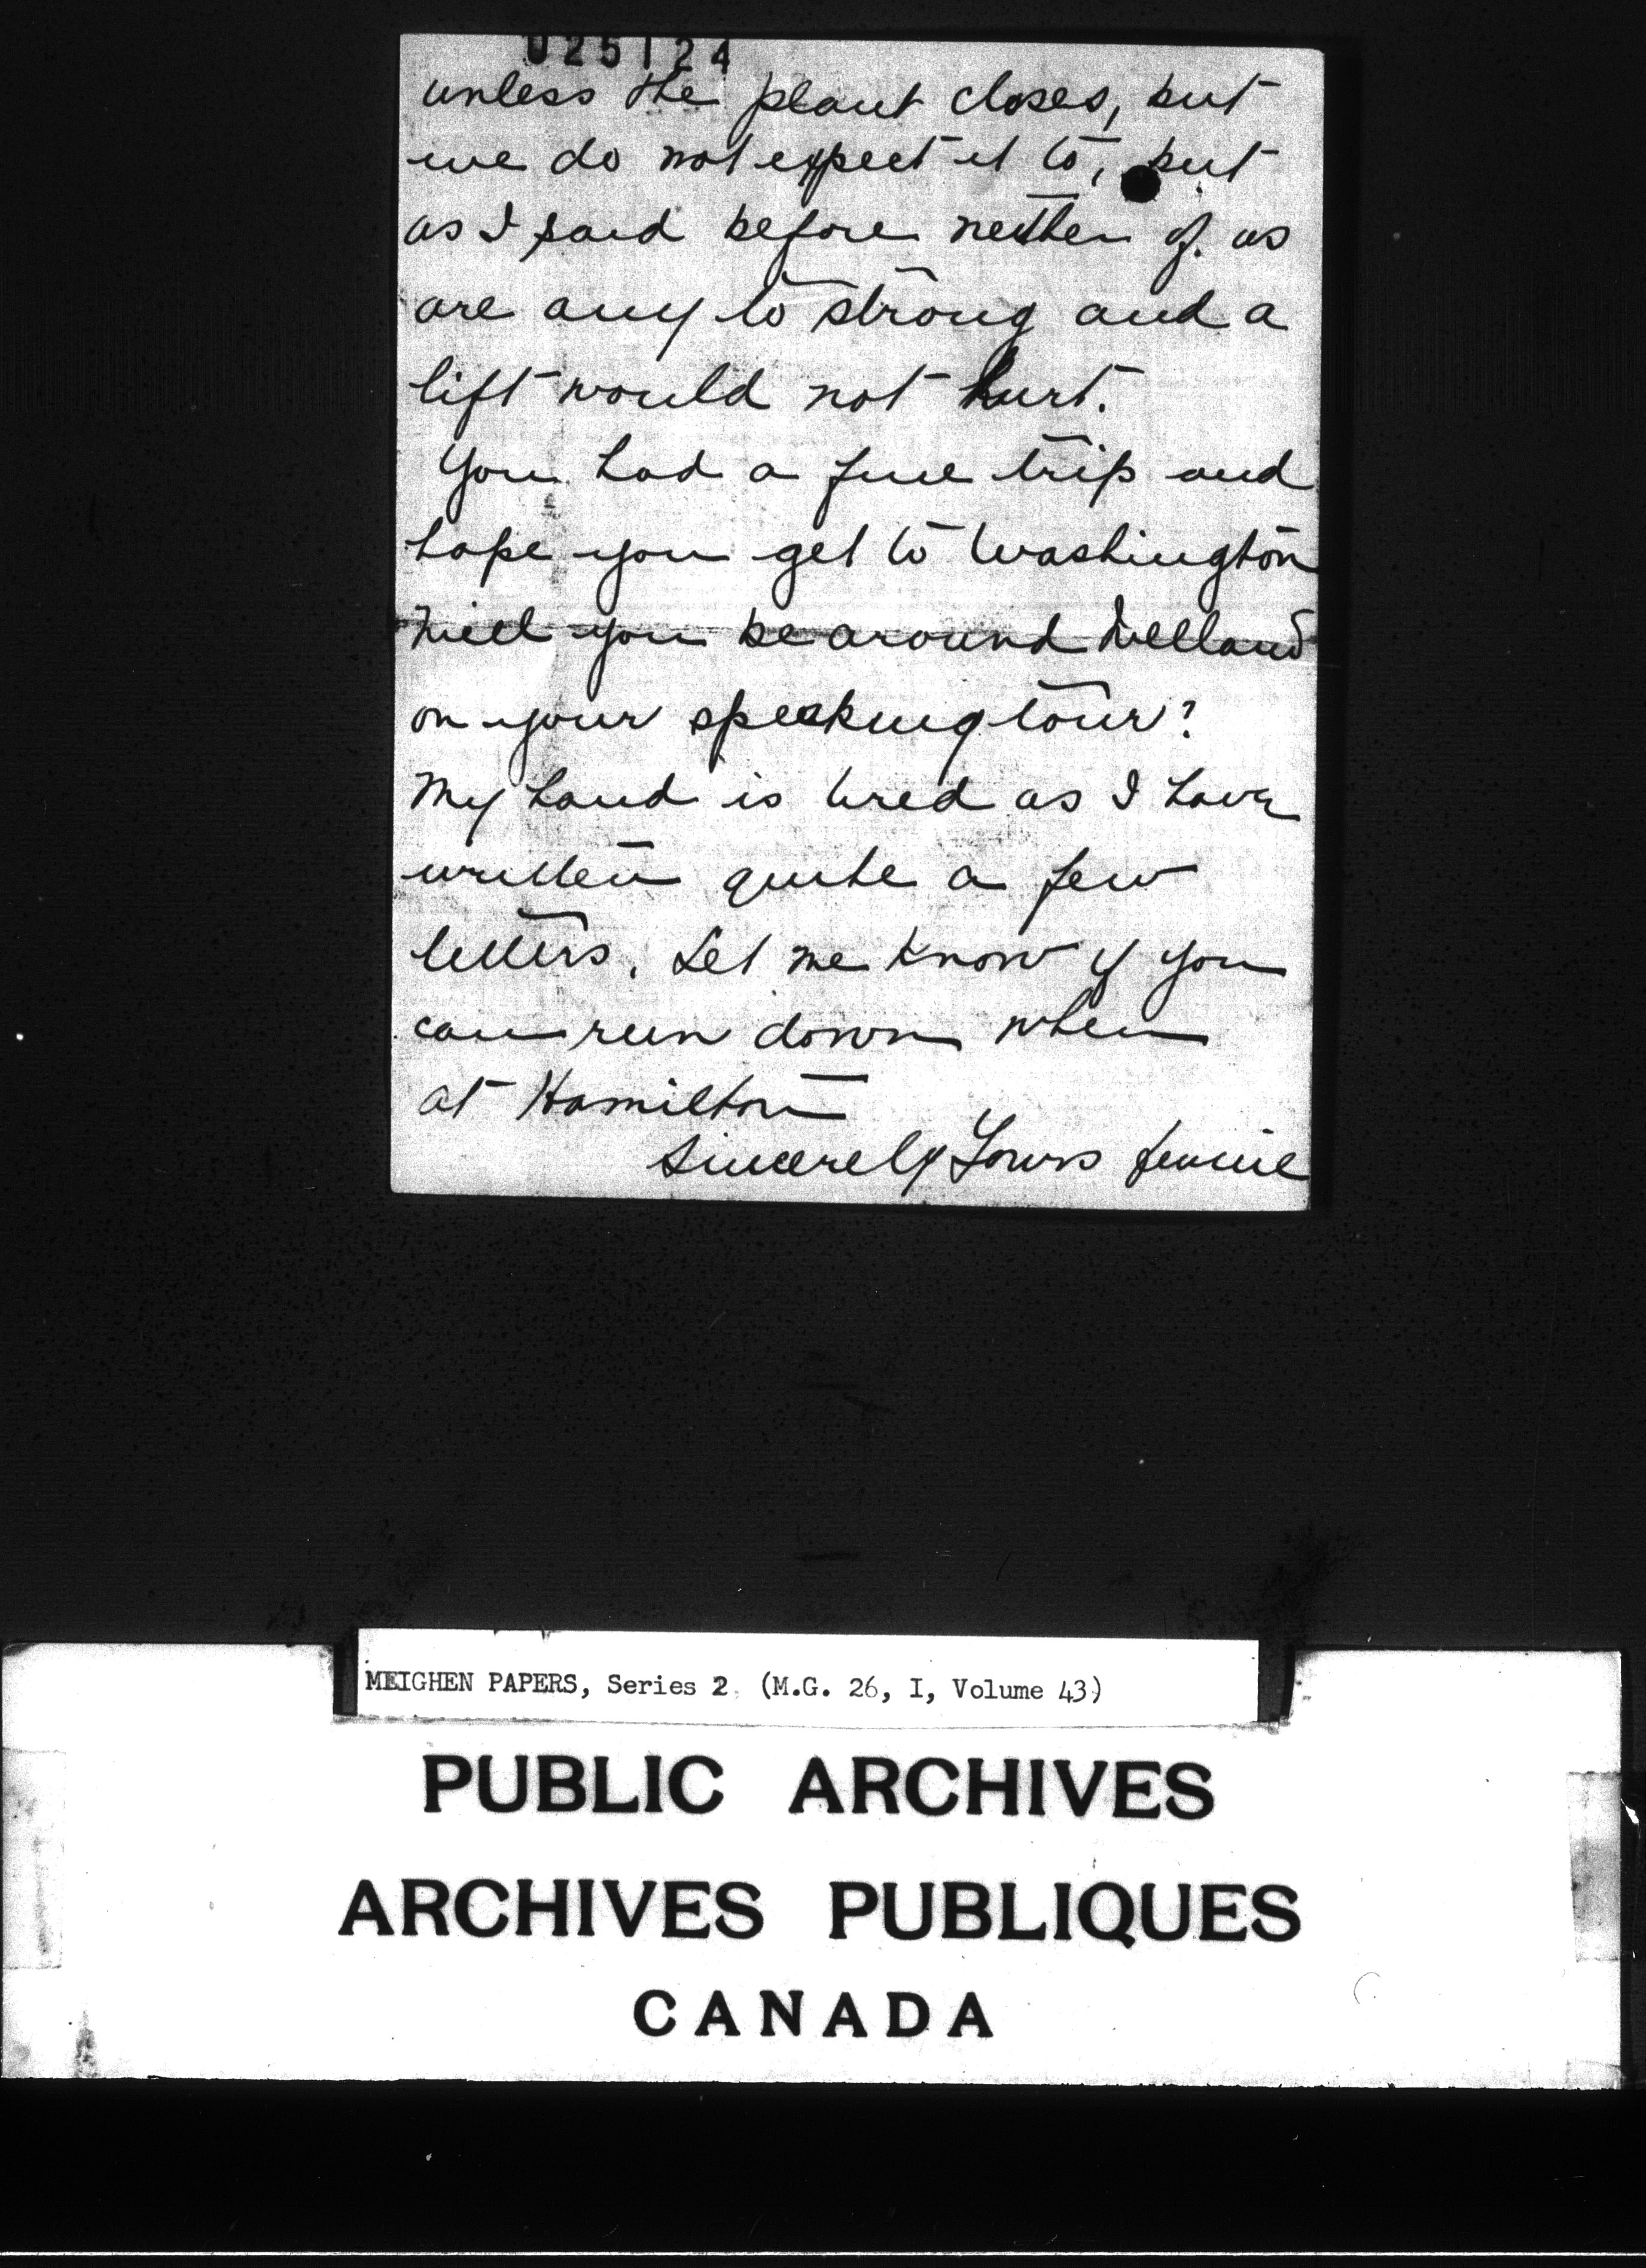 025124
unless the plant closes, but
we do not expect it to, but
as I said before neither of us
are any to strong and a
lift would not hurt.
You had a fine trip and
hope you get to Washington
Will you be around Welland
on your speaking tour?
My hand is tired as I have
written quite a few
letters. Let me know if you
can run down when
at Hamilton
Sincerely Yours Jennie
MEIGHEN PAPERS, Series 2 (M.G. 26, I, Volume 43)
PUBLIC ARCHIVES
ARCHIVES PUBLIQUES
CANADA